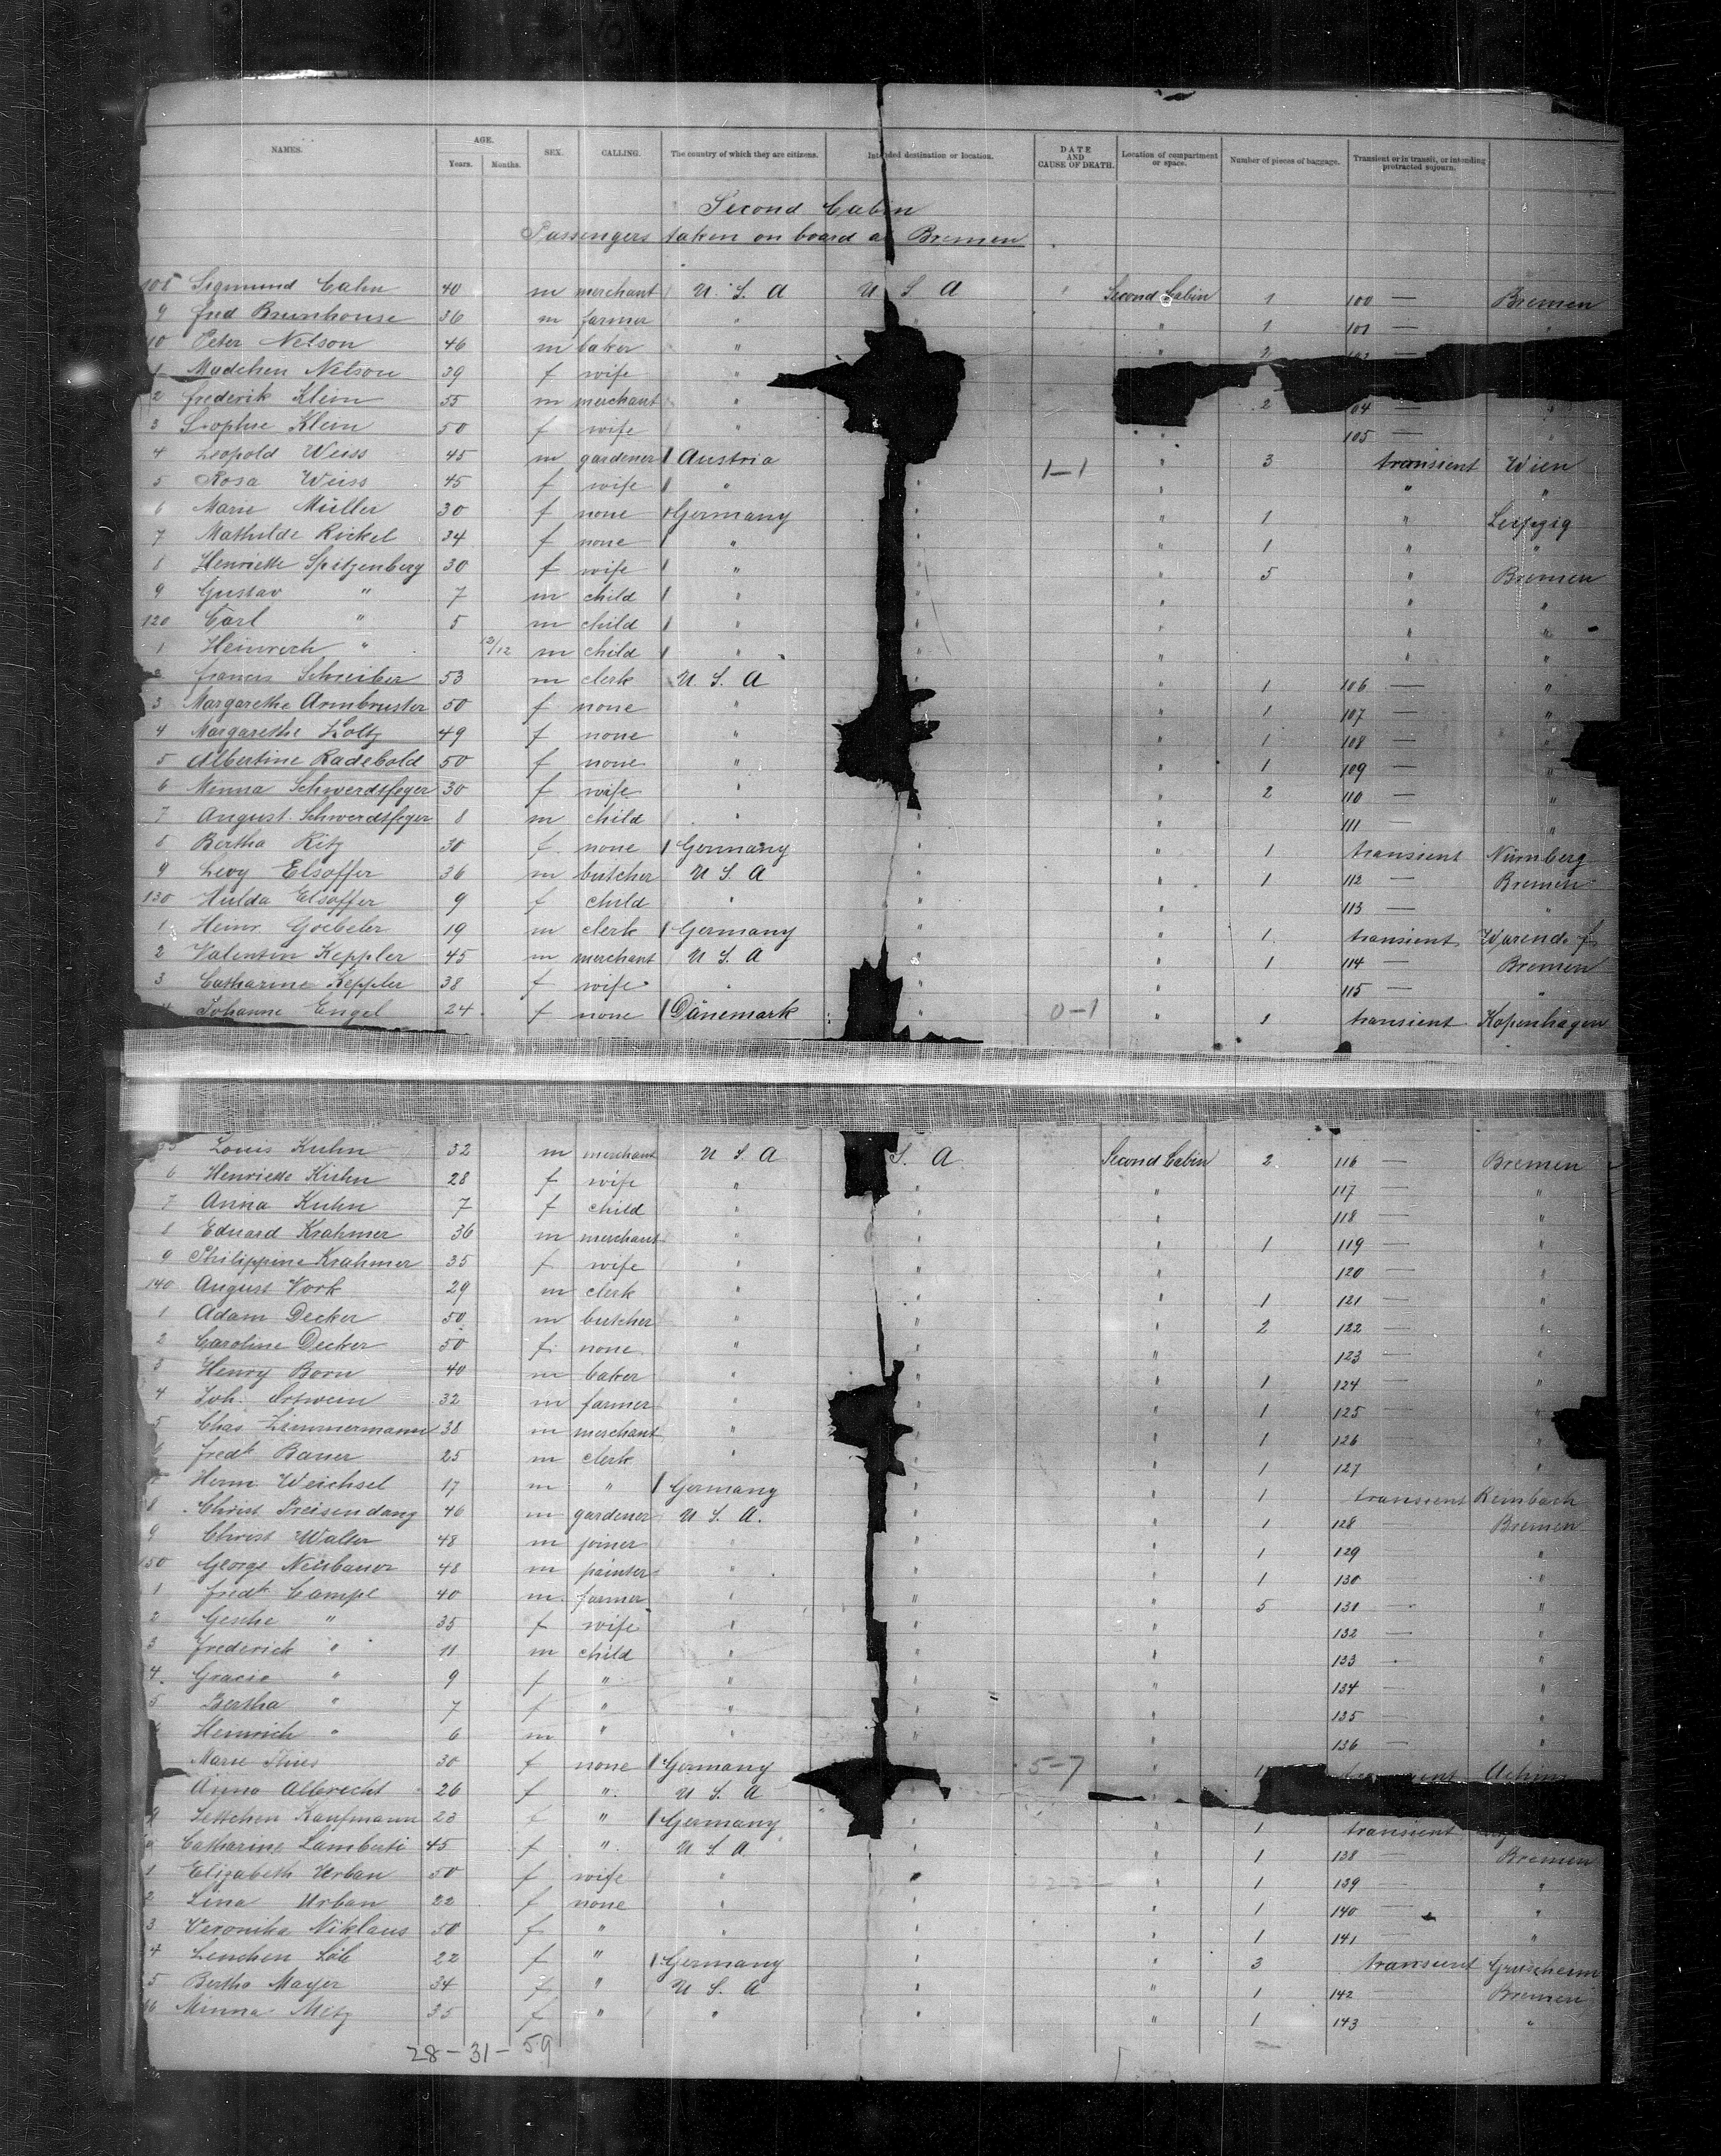 NAMES. AGE. Years. Months. SEX. CALLING. The country of which they are citizens. Intended destination or location. DATE AND CAUSE OF DEATH. Location of compartment or space. Number of pieces of baggage. Transient or in transit, or intending protracted sojourn.
Second Cabin
Passengers taken on board at Bremen
108 Sigmund Cahn 40 m merchant U. S. A U S A Second Cabin 1 100 — Bremen
9 Fred Brunhouse 36 m farmer " " 1 101 — "
10 Peter Nelson 46 m baker " " 2
1 Madchen Nelson 39 f wife "
2 Frederik Klein 55 m merchant " 2 104 — "
3 Sophie Klein 50 f wife " " 105 — "
4 Leopold Weiss 45 m gardener Austria " 1-1 " 3 transient Wien
5 Rosa Weiss 45 f wife " " " " "
6 Marie Müller 30 f none Germany " " 1 " Leipzig
7 Mathilde Rickel 34 f none " " " 1 " "
8 Henriette Spitzenberg 30 f wife " " " 5 " Bremen
9 Gustav " 7 m child " " " " "
120 Carl " 5 m child " " " " "
1 Heinrich " /12 m child " " " " "
2 Francis Schreiber 53 m clerk U. S. A " " 1 106 — "
3 Margarethe Armbruster 50 f none " " 1 107 — "
4 Margarethe Holtz 49 f none " " 1 108 — "
5 Albertine Radebold 50 f none " " " 1 109 — "
6 Minna Schwerdtfeger 30 f wife " " 2 110 — "
7 August Schwerdtfeger 8 m child " " " 111 — "
8 Bertha Ritz 30 f none Germany " " 1 transient Nürnberg
9 Levy Elsoffer 36 m butcher U S A " " 1 112 — Bremen
130 Hulda Elsoffer 9 f child " " " 113 — "
1 Heinr. Goebeler 19 m clerk Germany " " 1 transient
2 Valentin Keppler 45 m merchant U S. A " " 1 114 — Bremen
3 Catharine Keppler 38 f wife " " " 115 — "
4 Johanne Engel 24 f none Dänemark " 0-1 " 1 transient Kopenhagen
Louis Kuhn 32 m merchant U S. A S. A Second Cabin 2 116 — Bremen
6 Henriede Kuhn 28 f wife " " " 117 — "
7 Anna Kuhn 7 f child " " " 118 — "
8 Eduard Krahmer 36 m merchant " " " 1 119 — "
9 Philippine Krahmer 35 f wife " " " 120 — "
140 August Vork 29 m clerk " " " 1 121 — "
1 Adam Decker 50 m butcher " " 2 122 — "
2 Caroline Decker 50 f none " " " 123 — "
3 Henry Born 40 m baker " " " 1 124 — "
4 Joh. 32 m farmer " " " 1 125 — "
5 Chas Zimmermann 38 m merchant " " " 1 126 — "
Fredk Bauer 25 m clerk " " " 1 127 — "
Herm. Weichsel 17 m " Germany " " 1 transient Rembach
8 Christ Preisendang 46 m gardener U. S. A. " " 1 128 — Bremen
9 Christ Walter 48 m joiner " " " 1 129 — "
150 George Neubauer 48 m painter " " " 1 130 — "
1 Fredk Campe 40 m farmer " " " 5 131 — "
2 Gesche " 35 f wife " " " 132 — "
3 Frederick " 11 m child " " " 133 — "
4 Gracie " 9 f " " " " 134 — "
5 Bertha " 7 f " " " " 135 — "
Heinrich " 6 m " " " " 136 — "
Marie 30 f none Germany 5-7 1 Achim
Anna Albrecht 26 f " U S. A
9 Settchen Kaufmann 23 f " Germany " 1 transient
Catharine Lamberti 45 f " U S A " " 1 138 — Bremen
1 Elizabeth Urban 50 f wife " " " 1 139 — "
2 Lina Urban 22 f none " " " 1 140 — "
3 Veronika Niklaus 50 f " " " " 1 141 — "
4 Lenchen Löb 22 f " Germany " " 3 transient
5 Bertha Mayer 34 f " U S. A " " 1 142 — Bremen
66 Minna Metz 35 f " " " " 1 143 "
28 - 31 - 59